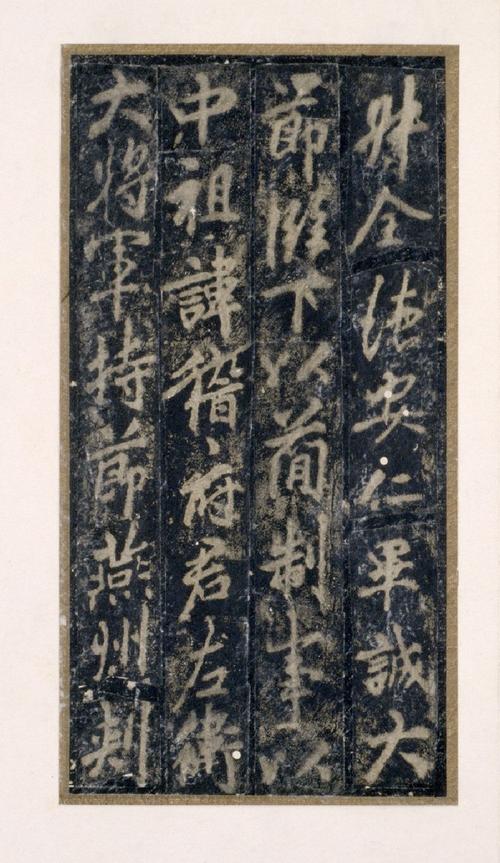 材全德安仁畢誠大
節臨下以簡制事以
中祖諱稽府君左衛
大將軍持節燕州刺